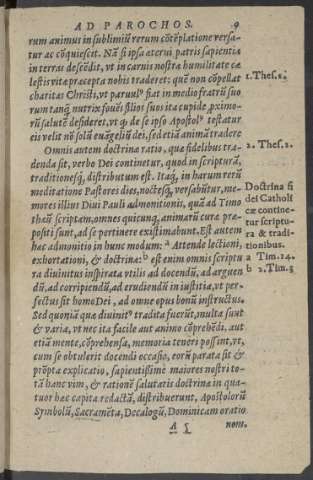 AD PAROCHOS. 9
rum animus in sublimiũ rerum cõtẽplatione versa-
tur ac cõquiescit. Nã si ipsa æterni patris sapientia
in terras descẽdit, vt in carnis nostræ humilitate cæ
lestis vitæ præcepta nobis traderet: quẽ non cõpellat
charitas Christi, vt paruul⁹ fiat in medio fratrũ suo
rum tanq̃ nutrix fouẽs filios suos ita cupide proximo-
rũ salutẽ desideret, vt qd̃ de se ipso Apostol⁹ testatur
eis velit nõ solũ euãgeliũ dei, sed etiã animã tradere
1. Thes. 2.
2. Thes. 2.
Omnis autem doctrinæ ratio, quæ fidelibus tra-
denda sit, verbo Dei continetur, quod in scripturã,
traditionesq; distributum est. Itaq; in harum rerũ
meditatione Pastores dies, noctesq; versabũtur, me-
mores illius Diui Pauli admonitionis, quã ad Timo
theũ scriptam, omnes quicunq; animarũ curæ præ-
positi sunt, ad se pertinere existimabunt. Est autem
hæc admonitio in hunc modum: ᵃ Attende lectioni,
exhortationi, & doctrinæ: ᵇ est enim omnis scriptu
ra diuinitus inspirata vtilis ad docendũ, ad arguen
dũ, ad corripiendũ, ad erudiendũ in iustitia, vt per-
fectus sit homo Dei, ad omne opus bonũ instructus.
Doctrina fi
dei Catholi
cæ contine-
tur scriptu-
ra & tradi-
tionibus.
a Tim. 14.
b 2. Tim. 3
Sed quoniã quæ diuinit⁹ tradita fuerũt, multa sunt
& varia, vt nec ita facile aut animo cõprehẽdi, aut
etiã mente, cõprehensa, memoria teneri possint, vt,
cum se obtulerit docendi occasio, eorũ parata sit &
prõpta explicatio, sapientissime maiores nostri to-
tã hanc vim, & rationẽ salutaris doctrinæ in qua-
tuor hæc capita redactã, distribuerunt, Apostolorũ
Symbolũ, Sacramẽta, Decalogũ, Dominicam oratio
A 5 nem.